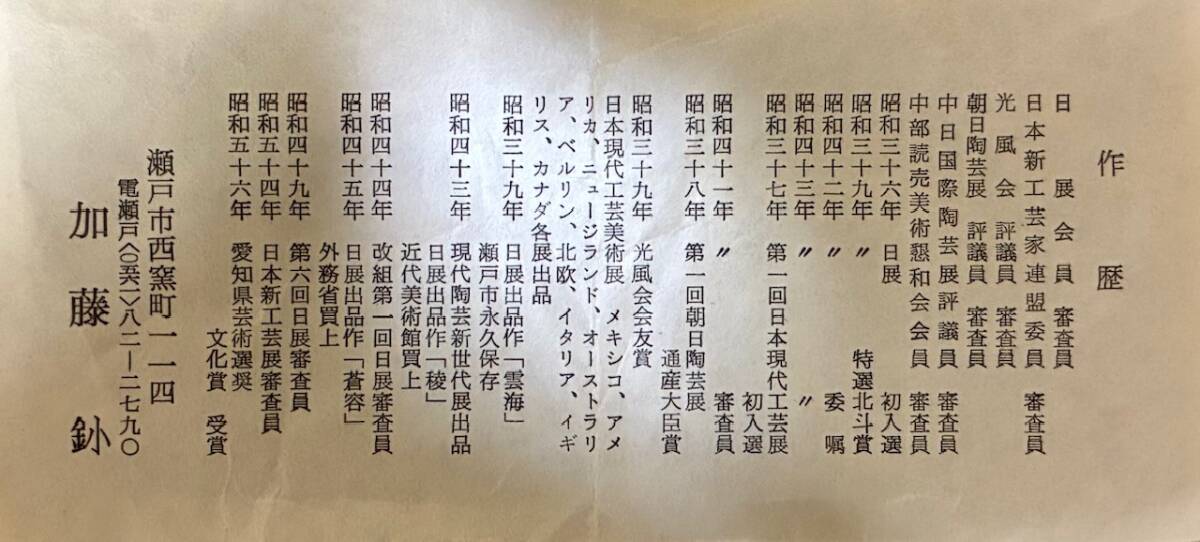 作歴
日展会員 審査員
日本新工芸家連盟委員 審査員
光風会 評議員 審査員
朝日陶芸展 評議員 審査員
中日国際陶芸展評議員 審査員
中部読売美術懇和会会員 審査員
昭和三十六年 日展 初入選
昭和三十九年 〃 特選北斗賞
昭和四十二年 〃 委嘱
昭和四十三年 〃 〃
昭和三十七年 第一回日本現代工芸展
初入選
昭和四十一年 〃 審査員
昭和三十八年 第一回朝日陶芸展
通産大臣賞
昭和三十九年 光風会会友賞
日本現代工芸美術展 メキシコ、アメ
リカ、ニュージランド、オーストラリ
ア、ベルリン、北欧、イタリア、イギ
リス、カナダ各展出品
昭和三十九年 日展出品作「雲海」
瀬戸市永久保存
昭和四十三年 現代陶芸新世代展出品
日展出品作「稜」
近代美術館買上
昭和四十四年 改組第一回日展審査員
昭和四十五年 日展出品作「蒼容」
外務省買上
昭和四十九年 第六回日展審査員
昭和五十四年 日本新工芸展審査員
昭和五十六年 愛知県芸術選奨
文化賞 受賞
瀬戸市西窯町一一四
電瀬戸〈〇五六一〉八二―二七九〇
加藤釥